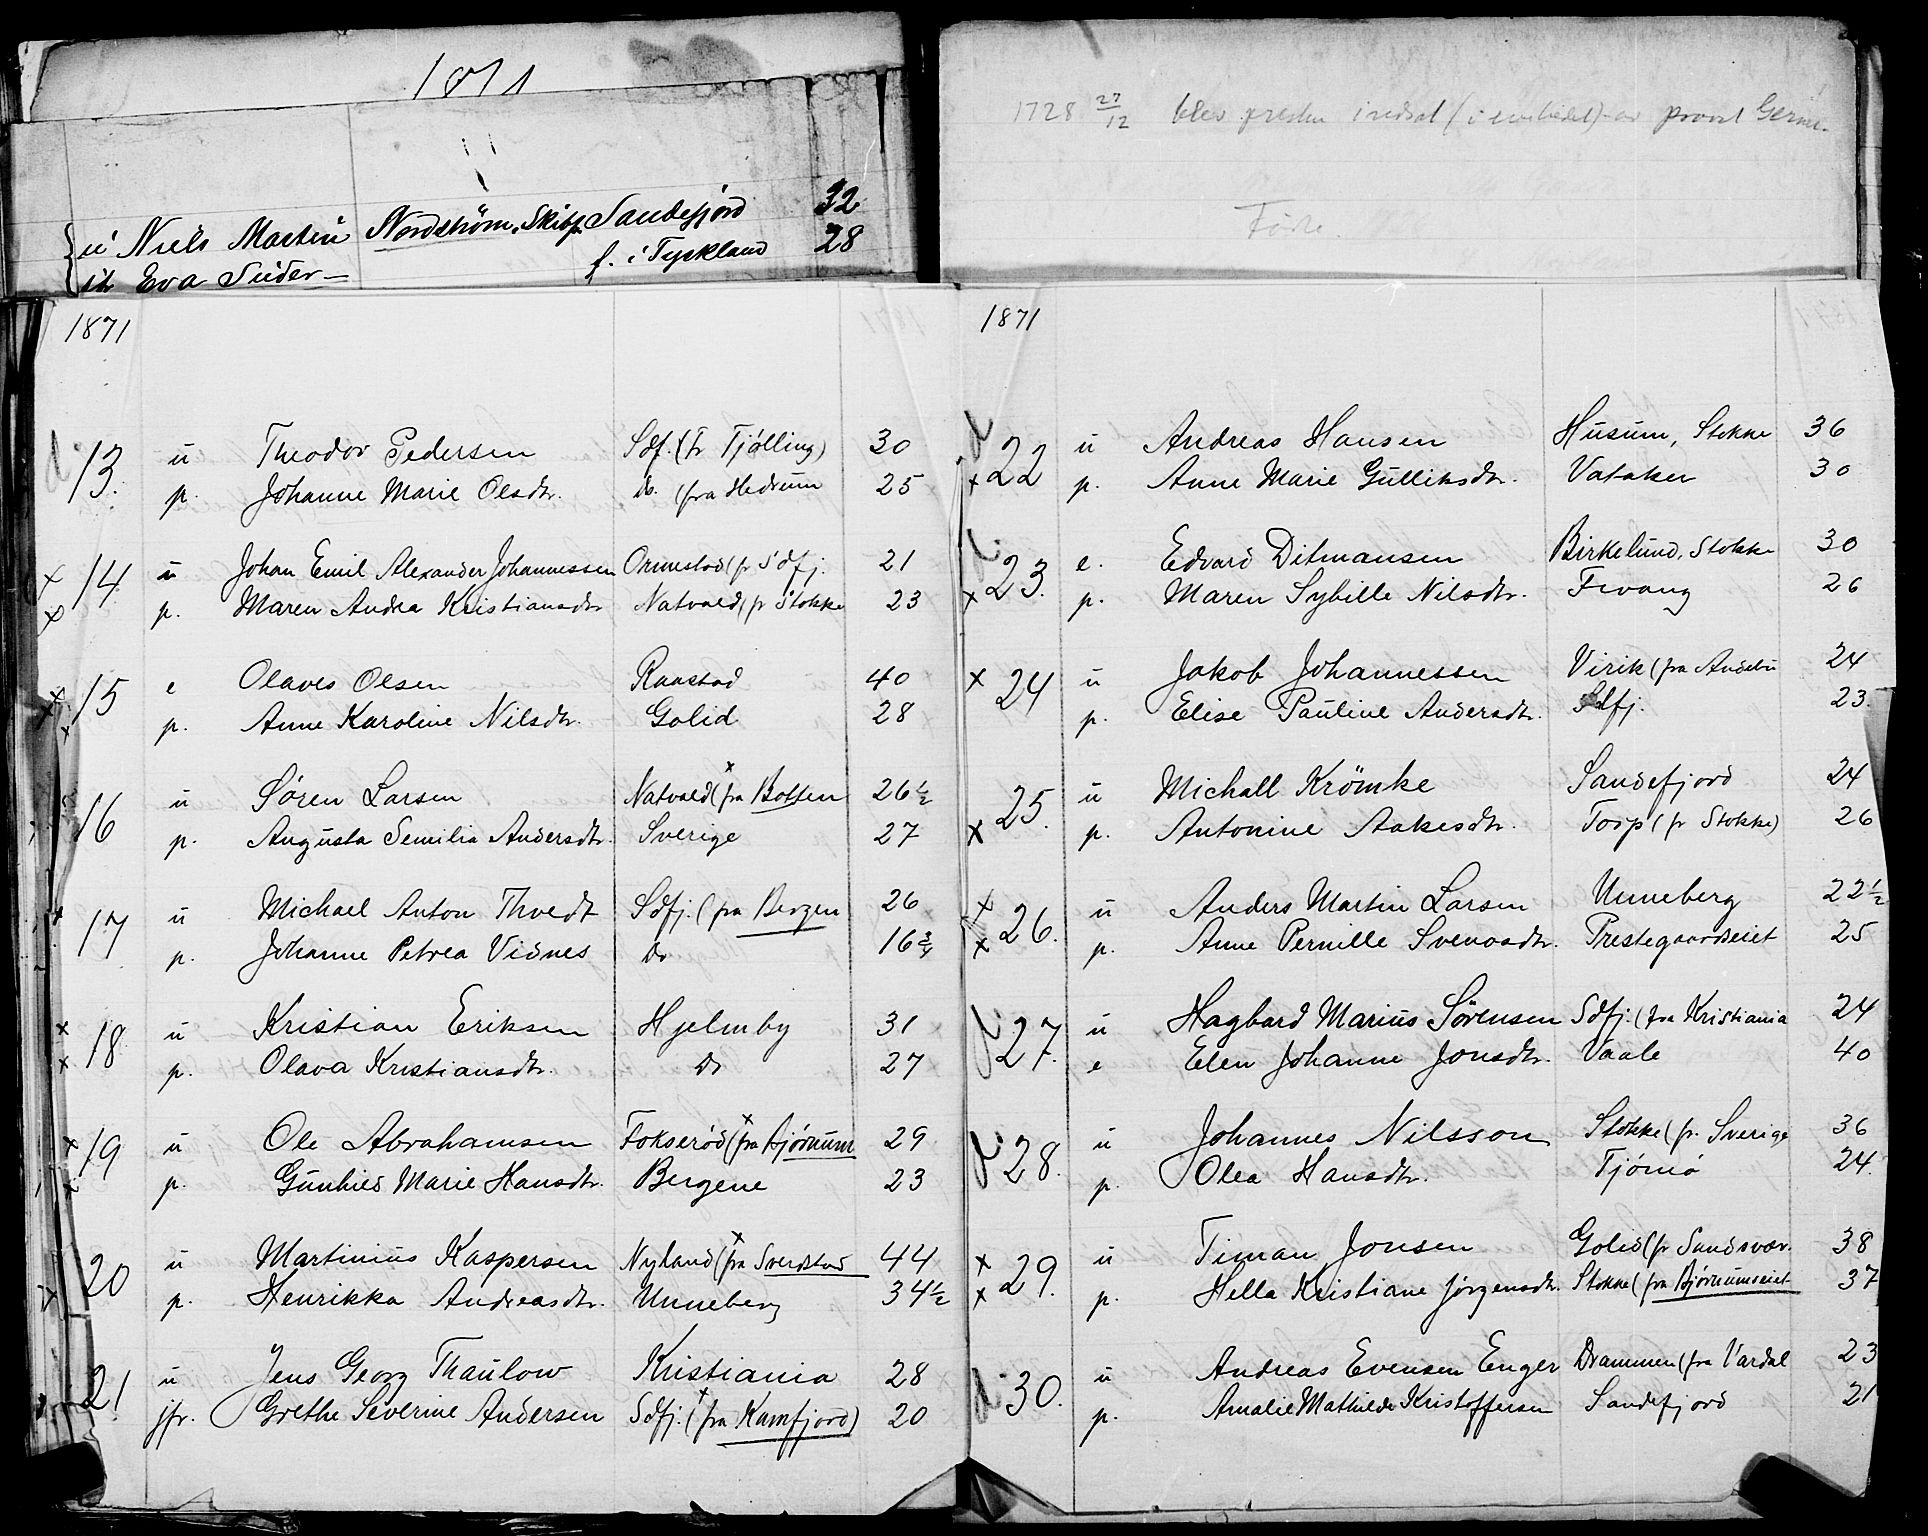 1871
u Niels Martin Nordström, Skibf. Sandefjord 32
Eva Suder— f. i Tyskland 28
1871
13. u Theodor Pedersen Sdf. (fr Tjølling) 30
p. Johanne Marie Olsdtr. do. (fra Hedrum 25
14 u Johan Emil Alexander Johannessen Ormestad (fr Sdfj. 21
p. Maren Andrea Kristiansdtr Natvald (fr Stokke 23
15 e Olaves Olsen Raastad 40
p. Anne Karoline Nilsdtr. Golid 28
16 u Søren Larsen Natvald (fra Botten 26½
p. Augusta Semilia Andersdtr. Sverige 27
17 u Michael Anton Thvedt Sdfj. (fra Bergen 26
p. Johanne Petrea Vidnes Do 16¾
18 u Kristian Eriksen Hjelmby 31
p. Olava Kristiansdtr. Do 27
19 u Ole Abrahamsen Fokserød (fra Bjørnum 29
p. Gunhild Marie Hansdtr. Bergene 23
20 u Martinius Kaspersen Nyland (fra Sverdstad 44
p. Henrikka Andreasdtr. Unneberg 34½
21 u Jens Georg Thaulow Kristiania 28
jfr. Grethe Severine Andersen Sdfj. (fra Kamfjord) 20
1728 27/12 blev presten indsat (i av provst
Fødte.
1871
d x 22 u Andreas Hansen Husum, Stokke 36
p. Anne Marie Gulliksdtr. Vataker 30
d. x 23. e. Edvard Ditmansen Birkelund, Stokke 30
p. Maren Sybille Nilsdtr. Fevang 26
x 24 u Jakob Johannessen Virik (fra Andebu 24
p. Elise Pauline Andersdtr. Sdfj. 23.
x 25. u Michall Krömke Sandefjord 24
p. Antonine Aakesdtr. Torp (fr Stokke) 26
x x 26. u Anders Martin Larsen Unneberg 22½
p. Anne Pernille Svenosdtr. Prestegaardseiet 25
d. 27. u Hagbard Marius Sörensen Sdfj. (fra Kristiania 24
e Elen Johanne Jonsdtr. Vaale 40
d. 28. u Johannes Nilsson Stokke (fr. Sverige 36
p. Olea Hansdtr. Tjömö 24.
x x 29. u Timan Jonsen Golid (fr Sandsvær. 38
p. Hella Kristiane Jörgensdtr. Stokke (fra Bjørnumseiet 37
d. 30. u Andreas Evensen Enger Drammen (fra Vardal 23
p. Amalie Mathilde Kristoffersen Sandefjord 21